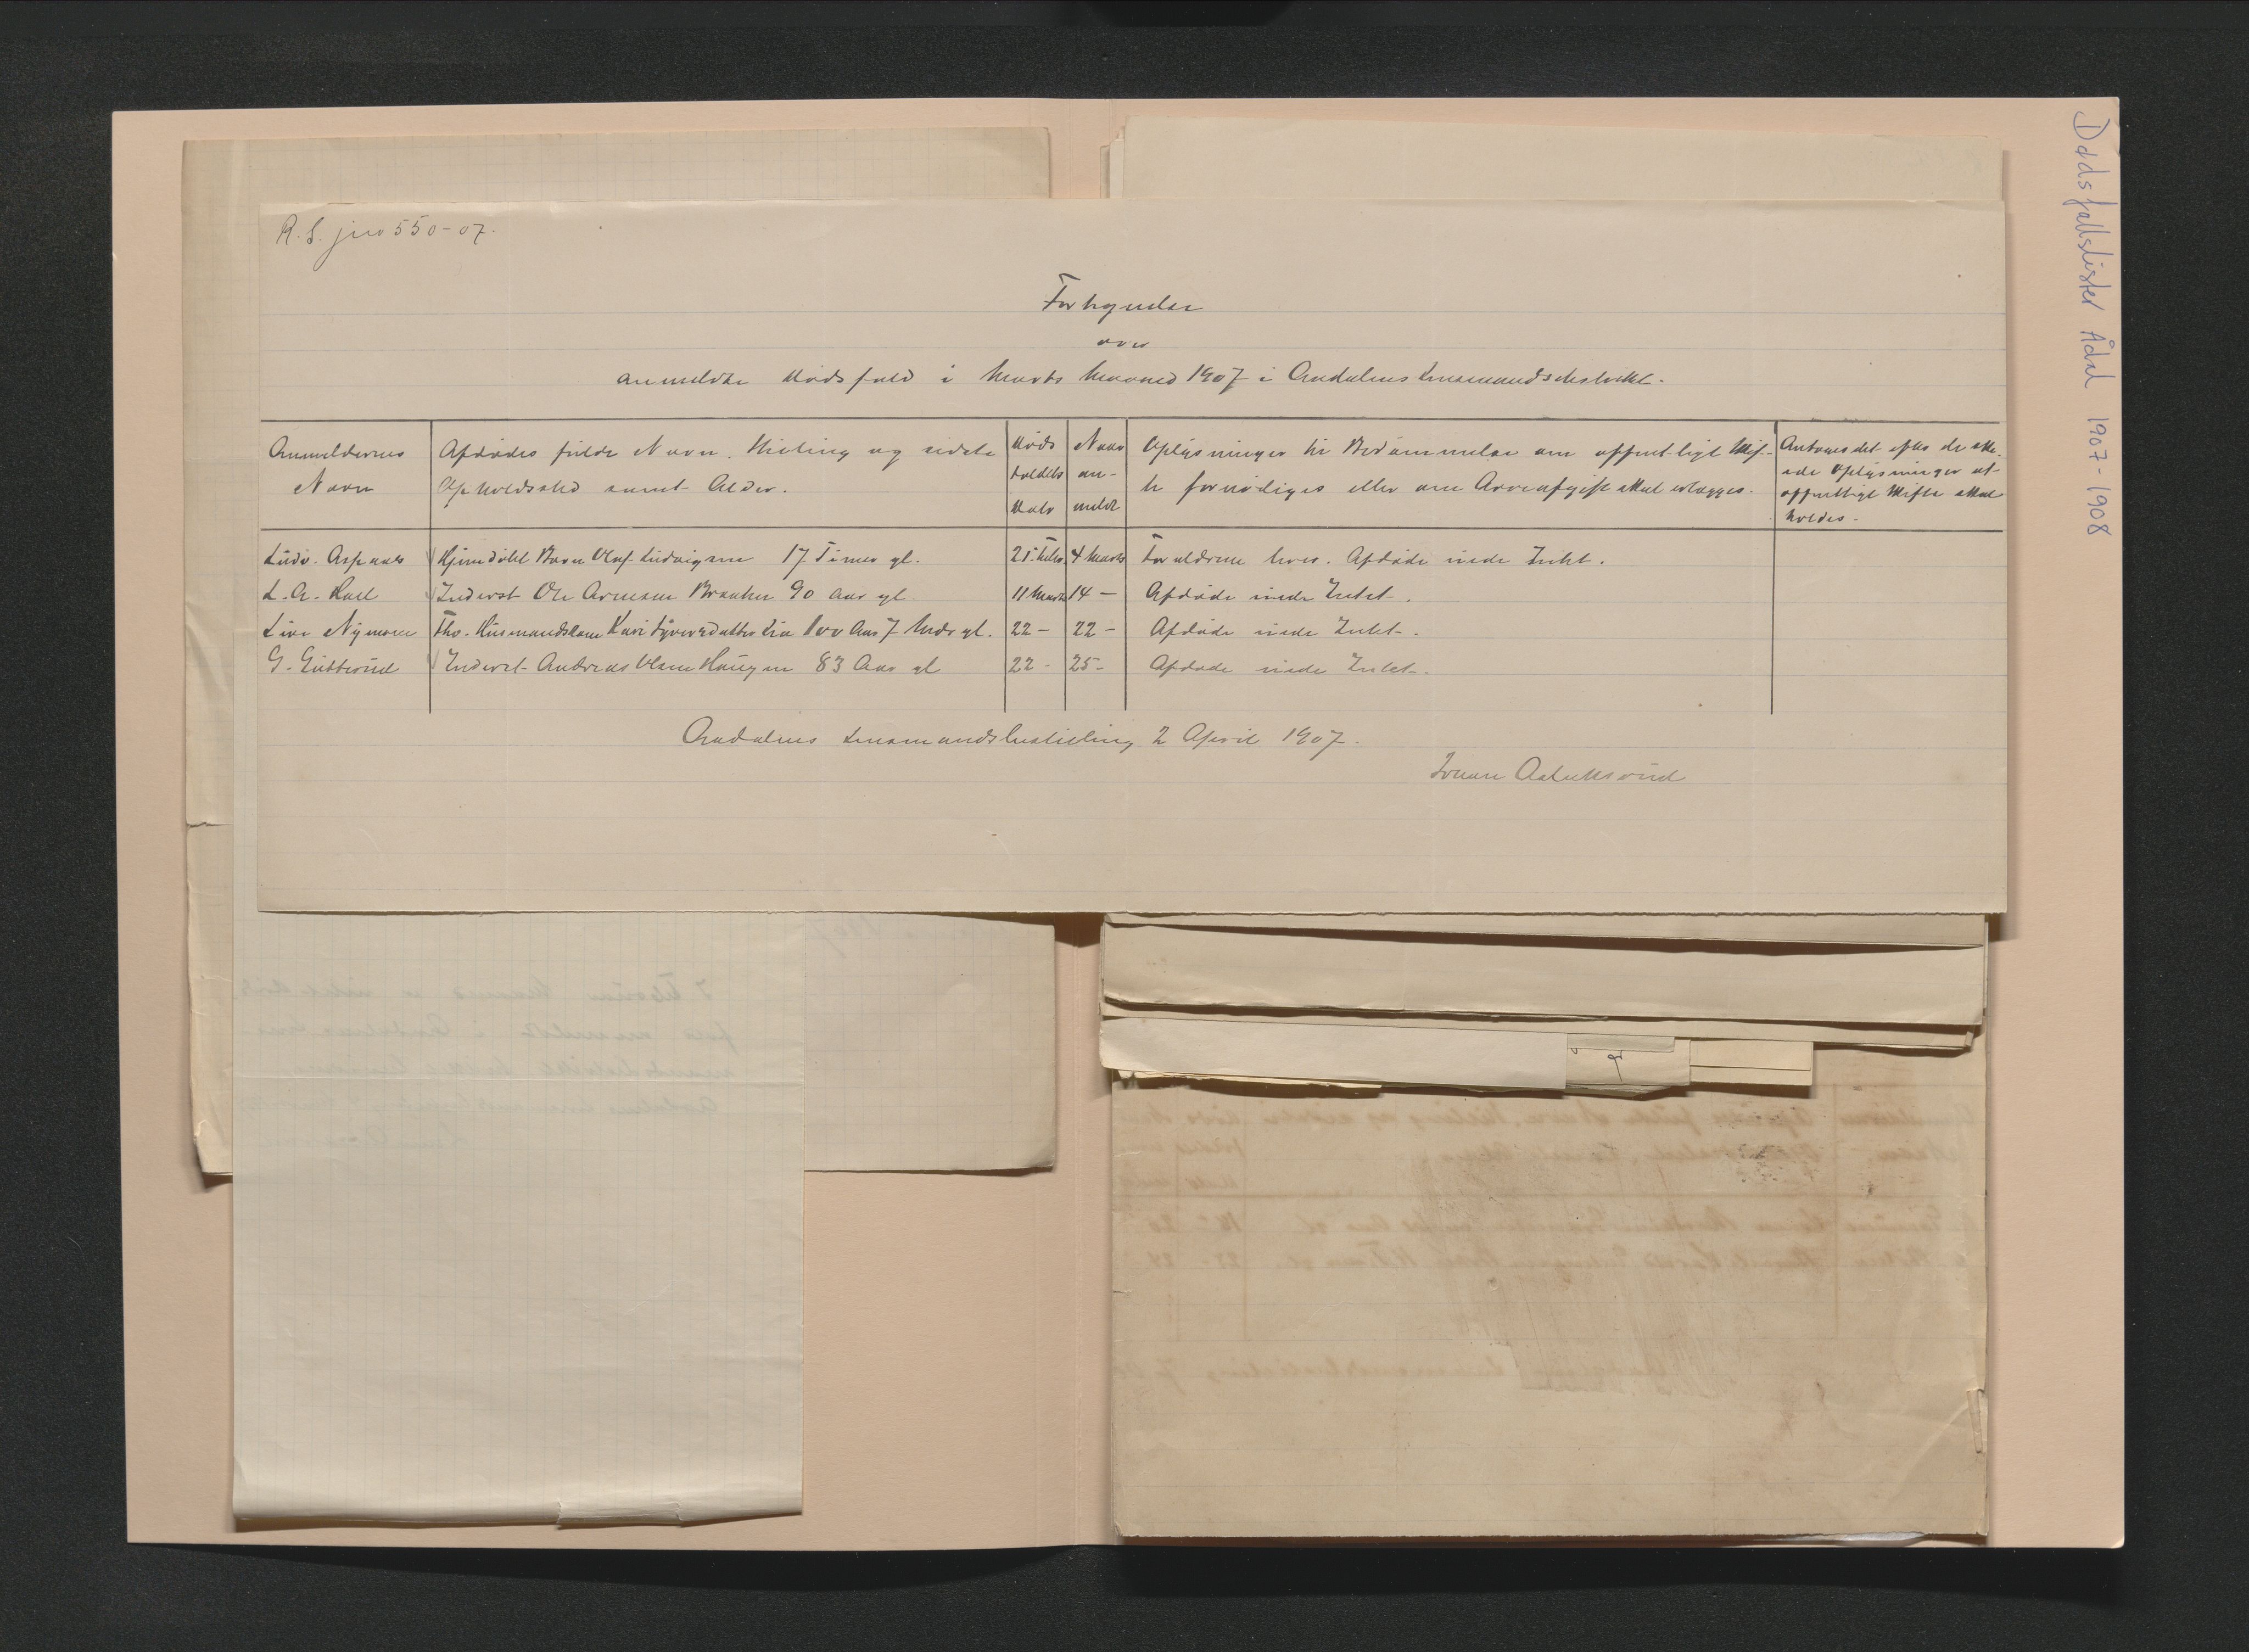 Dødsfallslister Ådal 1907-1908
R. S. jno 550-07.
Fortegnelse
over
anmeldte Dødsfald i Marts Maaned 1907 i Aadalens Lensmandsdistrikt.
Anmelderens Navn
Afdødes fulde Navn. Stilling og sidste Opholdssted samt Alder.
Døds faldets Dato
Naar an- meldt
Oplysninger til Bedømmelse om offentligt Skif- te fornødiges eller om Arveafgift skal erlægges.
Antages det efter de ske- ede Oplysninger at offentligt Skifte skal holdes.
Ludv. Aspaas Hjemdøbt Barn Olaf Ludvigsen 17 Timer gl. 25 Febr. 4 Marts Forældrene lever. Afdøde eiede Intet.
L. A. Hall Inderst Ole Arnesen Braaten 90 Aar gl. 11 Marts 14 - Afdøde eiede Intet.
Live Nymoen Fhv. Husmandskone Kari Syversdatter Lia 100 Aar 7 Mdr gl. 22 - 22 - Afdøde eiede Intet.
G. Gutterud Inderst Andreas Olsen Haugen 83 Aar gl 22 - 25 - Afdøde eiede Intet.
Aadalens Lensmandsbestilling 2 April 1907.